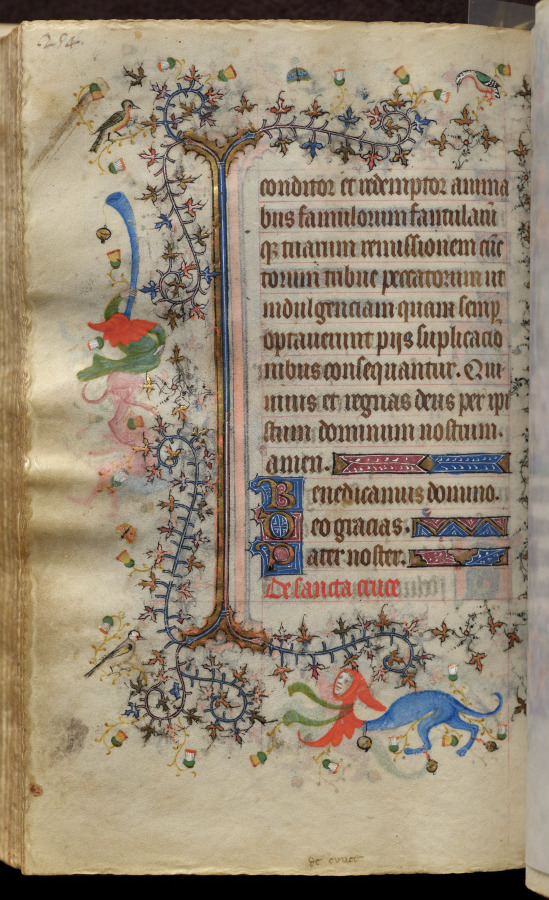 254.
conditor et redemptor anima
bus famulorum famularū
q; tuarum remissionem cūc
torum tribue peccatorum ut
indulgenciam quam semp
optauerunt pijs suplicacio
nibus consequantur. Qui
uiuis et regnas deus per ipī
stum dominum nostrum.
amen.
Benedicamus domino.
Deo gracias.
Pater noster.
De sancta cruce
de cruce